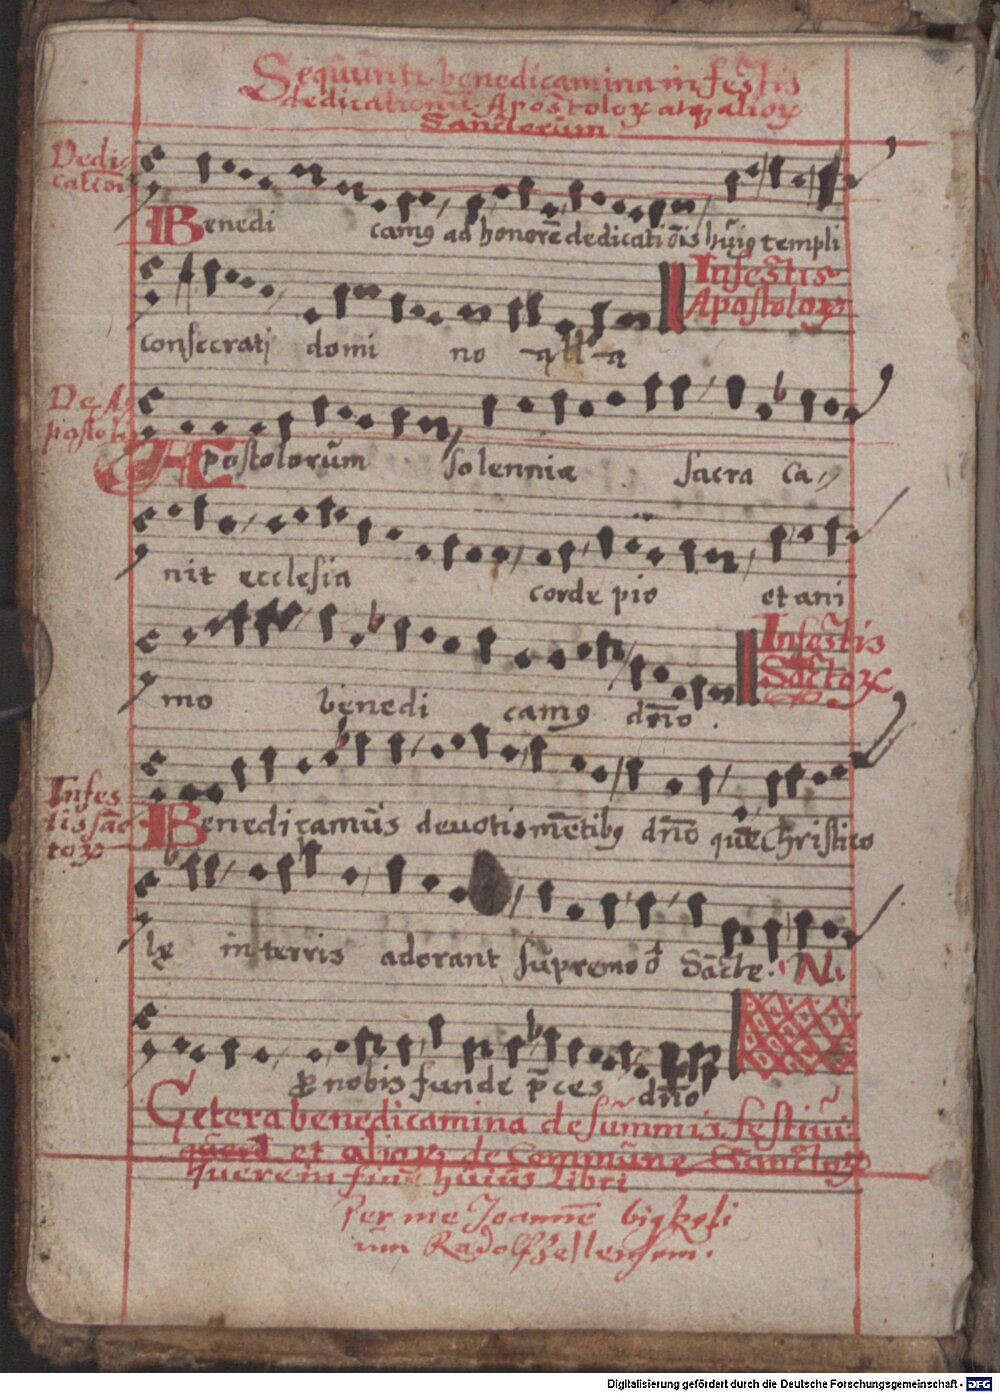 Sequūntr benedicamina in festis
dedicationū Apostoloꝝ atqꝫ alioꝝ
Sanctorūm
Dedi
catiōis
Benedi camꝰ ad honorē dedicatiōis hūiꝰ templi
consecrati domi no all a
In festis
Apostoloꝝ
De A
postolis
Apostolorūm solennia sacra ca
nit ecclesia corde pio et ani
mo benedi camꝰ dño .
In festis
Sāctoꝝ
In fes
tis sāc
toꝝ
Benedicamūs deuotis mētibꝰ dño quē Christico
lę in terris adorant sūpremo ô Sācte . N.
ꝓ nobis funde p̄ces dño
Cetera benedicamina de sūmmis festiui
et alioꝝ de Commūne Sanctoꝝ
quere in fine hūiūs Libri
Per me Joannē
um Radolfzellensem .
Digitalisierung gefördert durch die Deutsche Forschungsgemeinschaft - DFG